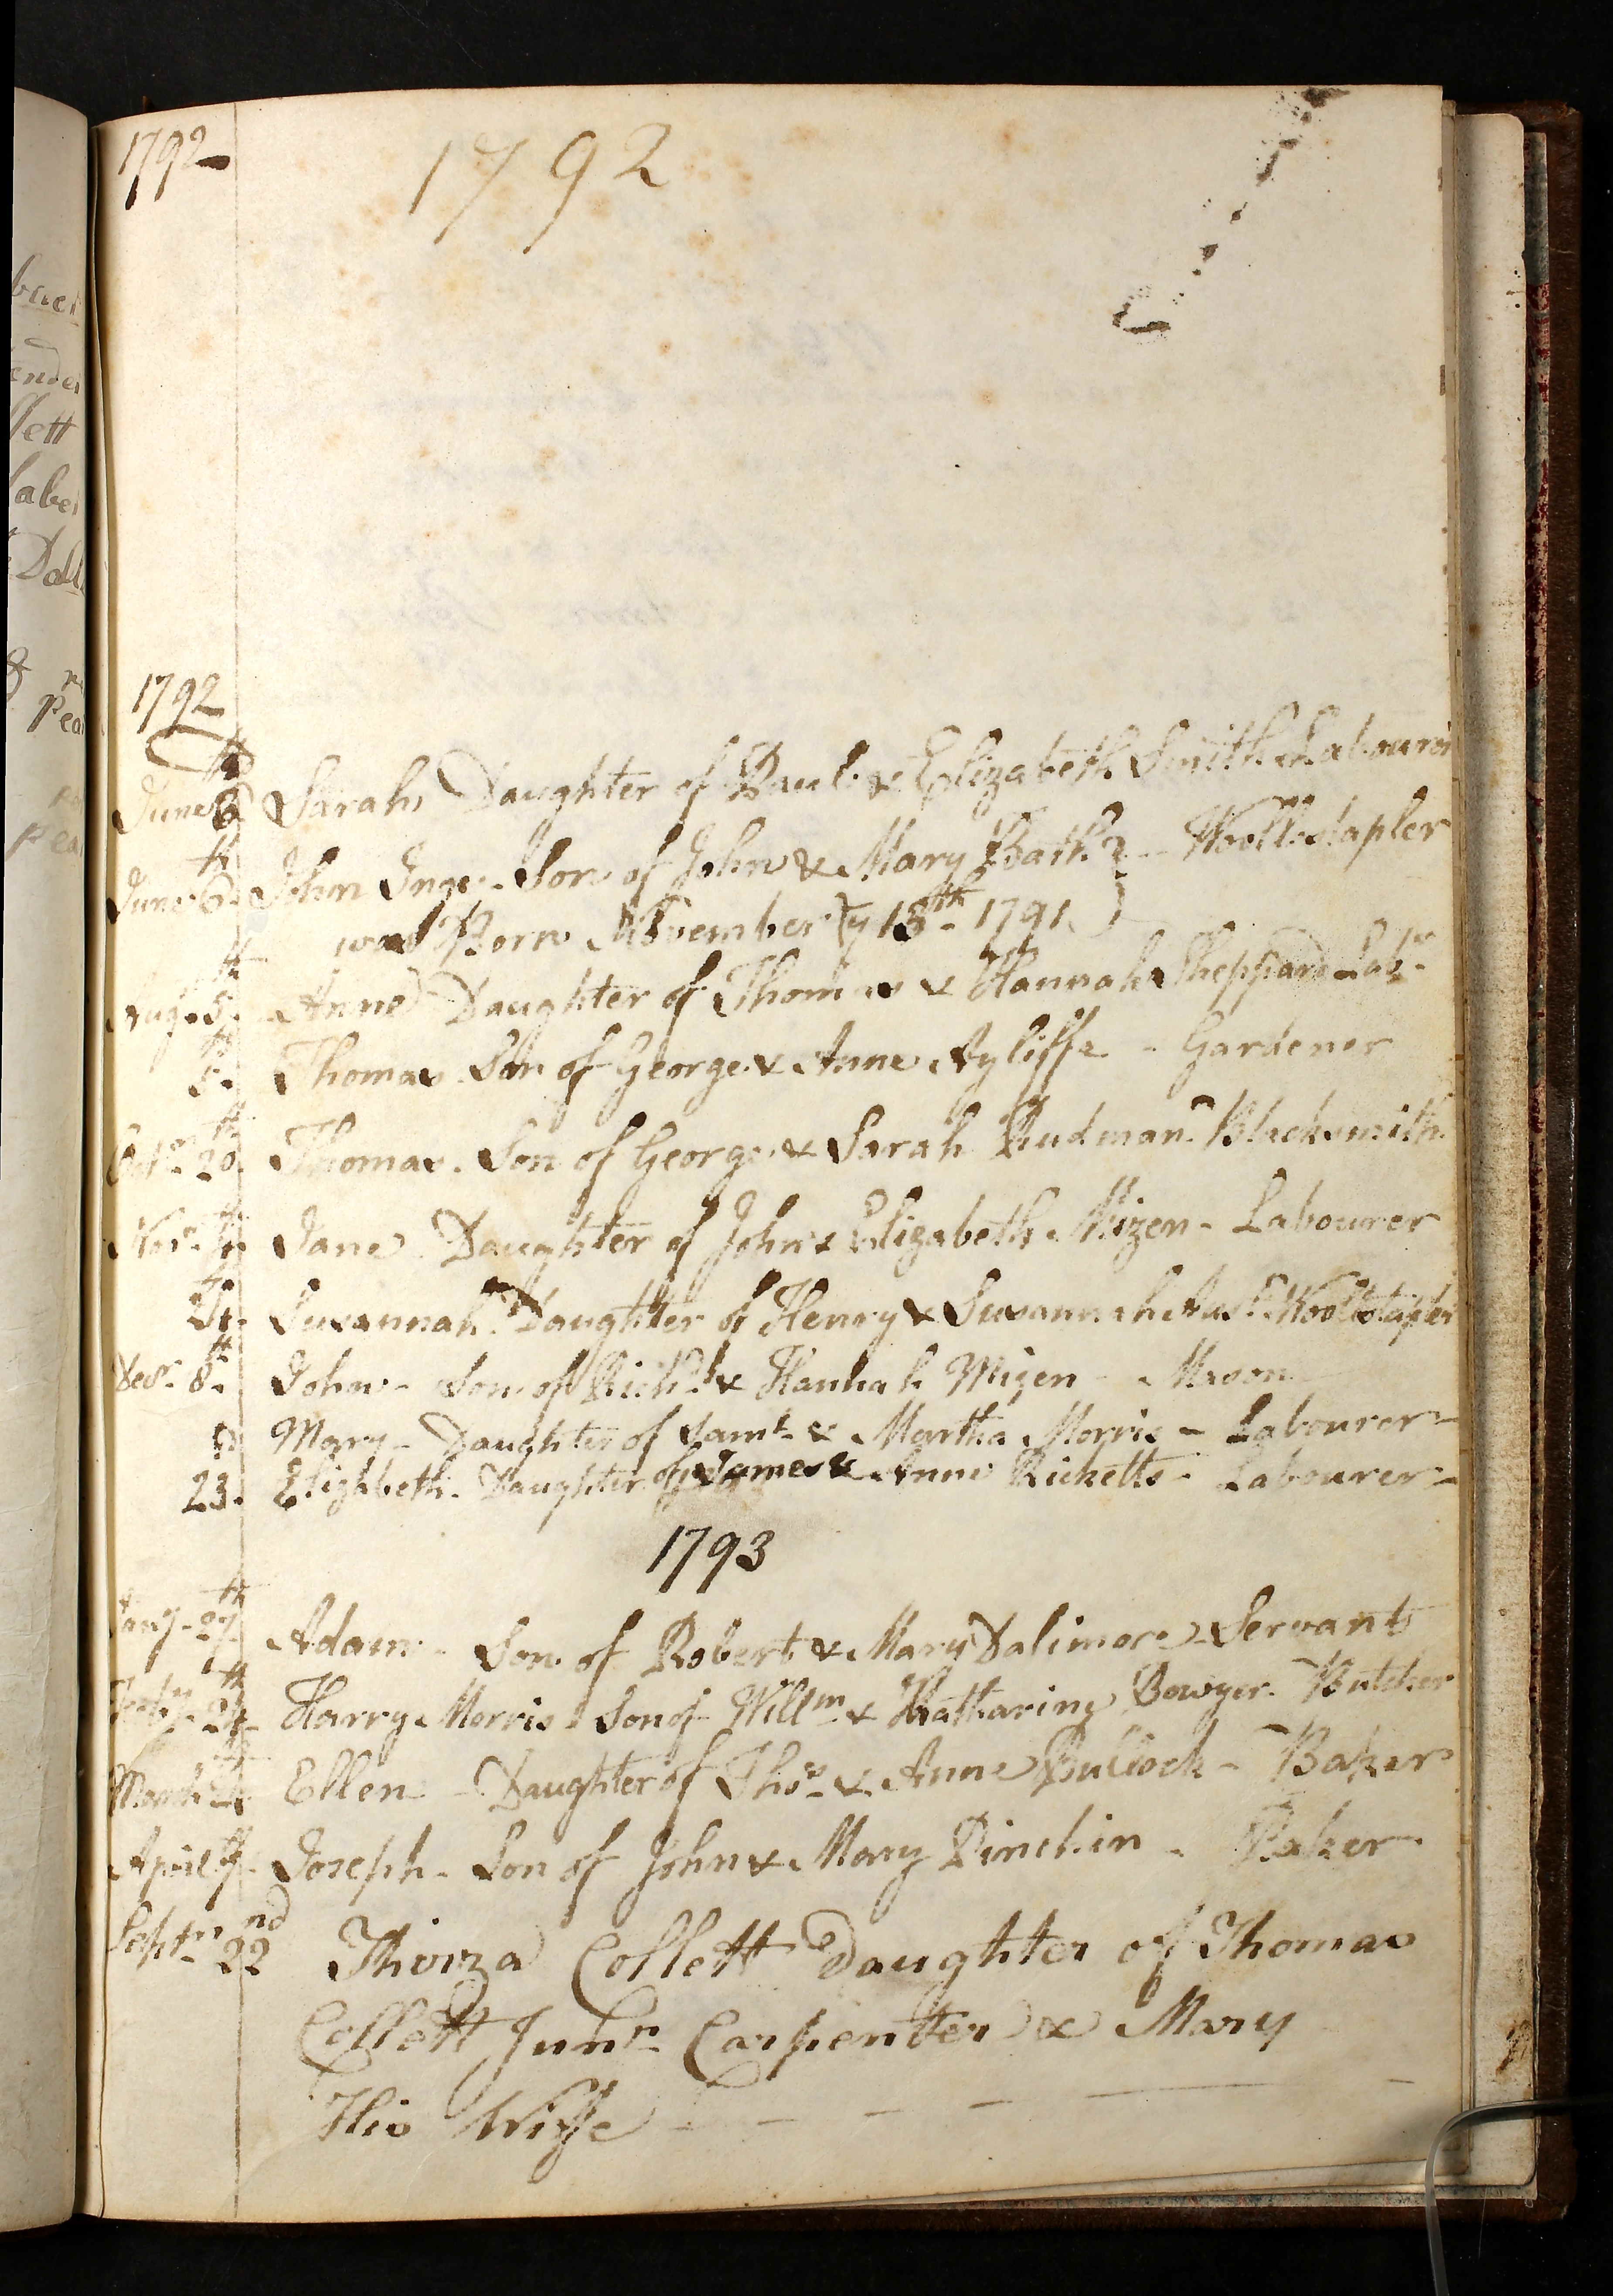 1792
1792
1792
June 6th Sarah, Daughter of Paul & Elizabeth Smith Labourer
June 6th John Inge - Son of John & Mary Bath } - Woollstapler
was Born November ye 18th 1791. }
Aug. 5th Anne Daughter of Thomas & Hannah Sheppard Labr
5th Thomas Son of George & Anne Ayliffe - Gardener
Octr 20th Thomas. Son of George & Sarah Rudman - Blacksmith
Novr Jane - Daughter of John & Elizabeth Mizen - Labourer
Susannah - Daughter of Henry & Susannah Woollstapler
Decr 8th John - Son of Richd & Hannah Mizen - Mason
Mary - Daughter of Saml & Martha Morris - Labourer -
23. Elizabeth - Daughter of James & Anne Ricketts - Labourer -
1793
Jany - 27th Adam - Son of Robert & Mary Dalimore - Servant
Feby - 24th Harry Morris - Son of Willm & Katharine Bowyer - Butcher
March Ellen - Daughter of Thos & Anne Bullock - Baker
April Joseph - Son of John & Mary Pinchin - Baker
Septr 22nd Thirza Collett Daughter of Thomas
Collett Junr Carpentter & Mary
His Wiffe - - - -